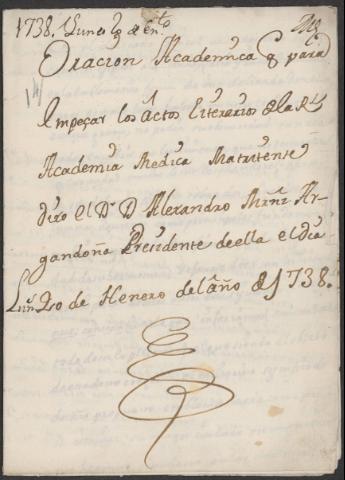 1738. Lunes 20 de En.ro
Oracion Academica q para
Empeçar los Actos Literarios de la Rl
Academia Medica Matritense
dixo el Dr D Alexandro Mrñz Ar-
gandoña Presidente de ella el dia
Lun 20 de Henero del año de 1738.